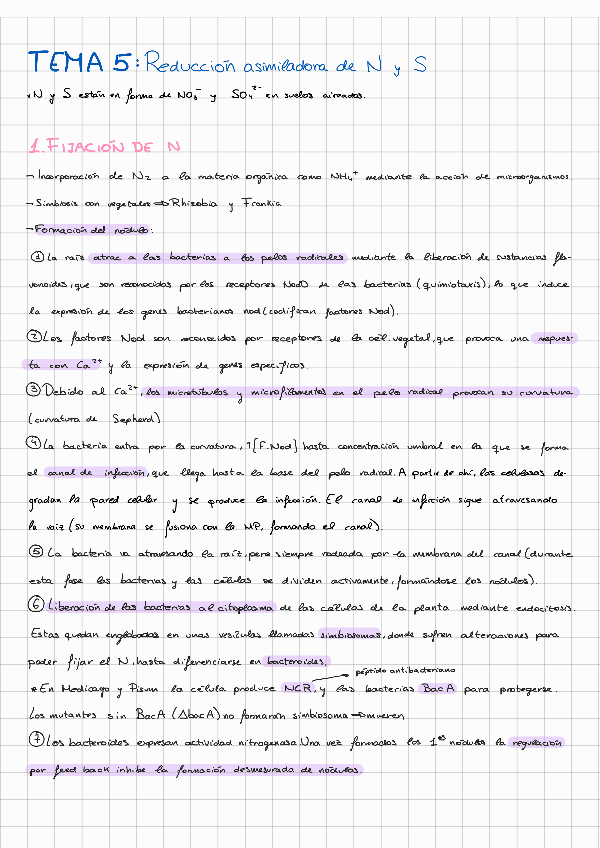 TEMA 5: Reducción asimiladora de N y S
•N y S están en forma de NO₃⁻ y SO₄²⁻ en suelos aireados.
1. FIJACIÓN DE N
- Incorporación de N₂ a la materia orgánica como NH₄⁺ mediante la acción de microorganismos
- Simbiosis con vegetales ⇒ Rhizobia y Frankia
- Formación del nódulo:
① La raíz atrae a las bacterias a los pelos radicales mediante la liberación de sustancias fla-
vonoides, que son reconocidos por los receptores NodD de las bacterias (quimiotaxis), lo que induce
la expresión de los genes bacterianos nod (codifican factores Nod).
② Los factores Nod son reconocidos por receptores de la cél. vegetal, que provoca una respues-
ta con Ca²⁺ y la expresión de genes específicos.
③ Debido al Ca²⁺, los microtúbulos y microfilamentos en el pelo radical provocan su curvatura
(curvatura de Sepherd)
④ La bacteria entra por la curvatura, ↑[F.Nod] hasta concentración umbral en la que se forma
el canal de infección, que llega hasta la base del pelo radical. A partir de ahí, las celulasas de-
gradan la pared celular y se produce la infección. El canal de infección sigue atravesando
la raíz (su membrana se fusiona con la MP, formando el canal).
⑤ La bacteria va atravesando la raíz, pero siempre rodeada por la membrana del canal (durante
esta fase las bacterias y las células se dividen activamente, formándose los nódulos).
⑥ Liberación de las bacterias al citoplasma de las células de la planta mediante endocitosis.
Estas quedan englobadas en unas vesículas llamadas simbiosomas, donde sufren alteraciones para
poder fijar el N, hasta diferenciarse en bacteroides.
péptido antibacteriano
* En Medicago y Pisum la célula produce NCR, y las bacterias BacA para protegerse.
Los mutantes sin BacA (ΔbacA) no formaran simbiosoma ⇒ mueren
⑦ Los bacteroides expresan actividad nitrogenasa. Una vez formados los 1ᵒˢ nódulos la regulación
por feed back inhibe la formación desmesurada de nódulos.